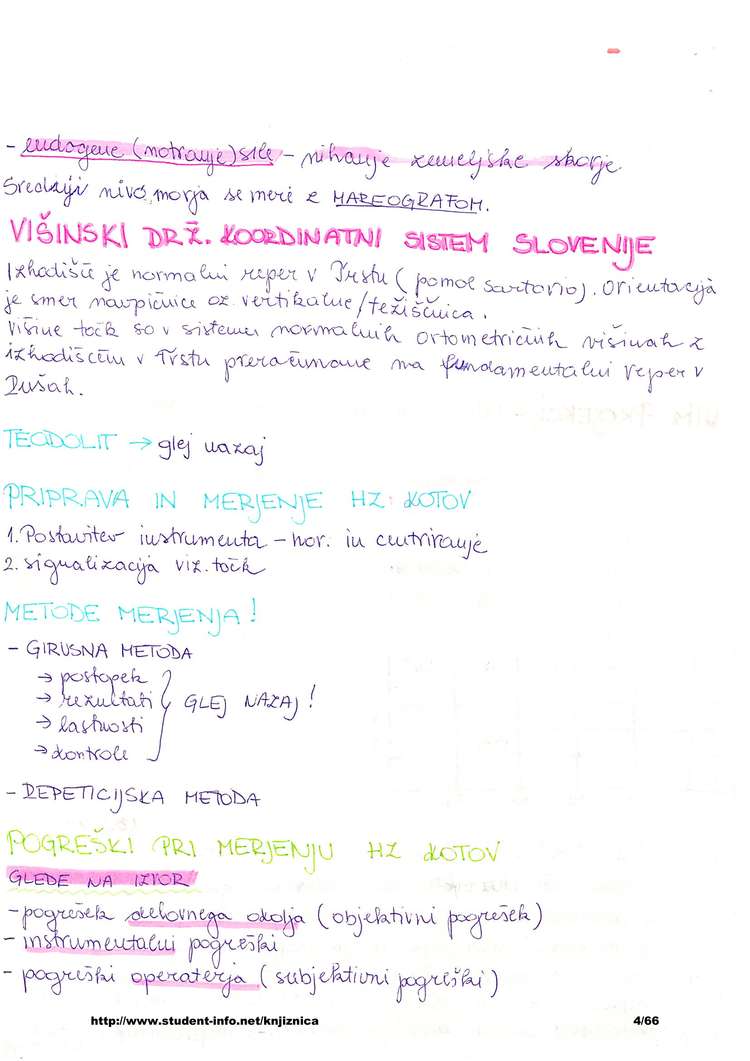 - endogene (notranje) sile - nihanje zemeljske skorje
Srednji nivo morja se meri z MAREOGRAFOM.
VIŠINSKI DRŽ. KOORDINATNI SISTEM SLOVENIJE
Izhodišče je normalni reper v Trstu (pomol Sartorio). Orientacija
je smer navpičnice oz vertikalne/težiščnica.
Višine točk so v sistemu normalnih ortometričnih višinah z
izhodiščem v Trstu preračunane na fundamentalni reper v
Rušah.
TEODOLIT → glej nazaj
PRIPRAVA IN MERJENJE HZ KOTOV
1. Postavitev instrumenta - hor. in centriranje
2. signalizacija viz. točk
METODE MERJENJA!
- GIRUSNA METODA
→ postopek
→ rezultati } GLEJ NAZAJ!
→ lastnosti
→ kontrole
- REPETICIJSKA METODA
POGREŠKI PRI MERJENJU HZ KOTOV
GLEDE NA IZVOR
- pogrešek delovnega okolja (objektivni pogrešek)
- instrumentalni pogreški
- pogreški operaterja (subjektivni pogreški)
http://www.student-info.net/knjiznica 4/66